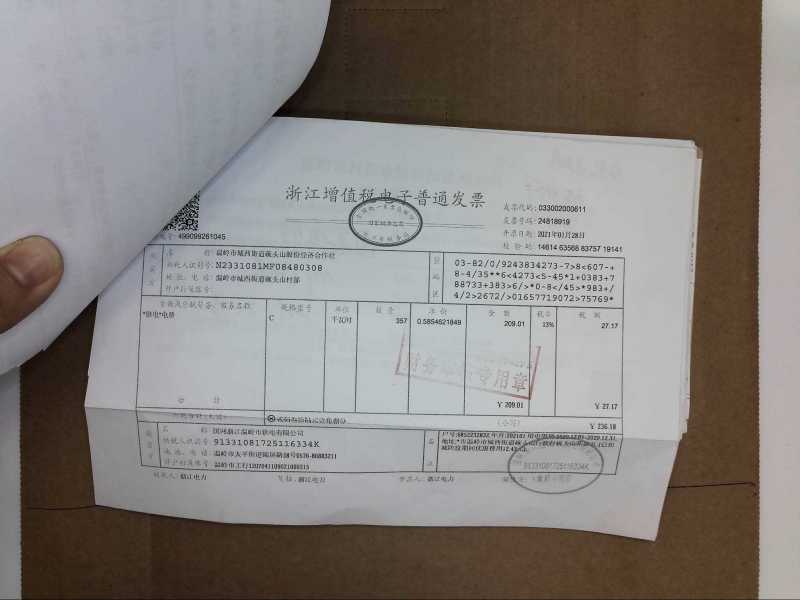 浙江增值税电子普通发票
发票代码: 033002000611
发票号码: 24818919
开票日期: 2021年01月28日
校 验 码: 14614 63568 83757 19141
499099261045
名 称: 温岭市城西街道硫头山股份经济合作社
纳税人识别号: N2331081MF08480308
地 址、电 话: 温岭市城西街道硫头山村部
开户行及账号:
03-82/0/9243834273-7>8<607-+
8-4/35**6<4273<5-45*1+0383+7
88733+383>6/>*0-8</45>*983+/
4/2>2672/>01657719072>75769*
货物或应税劳务、服务名称 规格型号 单位 数量 单价 金额 税率 税额
*供电*电费 C 千瓦时 357 0.5854621849 209.01 13% 27.17
财务 专用章
合 计 ¥ 209.01 ¥ 27.17
价税合计(大写) 贰佰叁拾陆元壹角捌分 (小写) ¥ 236.18
名 称: 国网浙江温岭市供电有限公司
纳税人识别号: 91331081725116334K
地 址、电 话: 温岭市太平街道锦屏路 0576-86883211
开户行及账号: 温岭市工行1207041109021000315
91331081725116334K
收款人: 浙江电力 复核: 浙江电力 开票人: 浙江电力